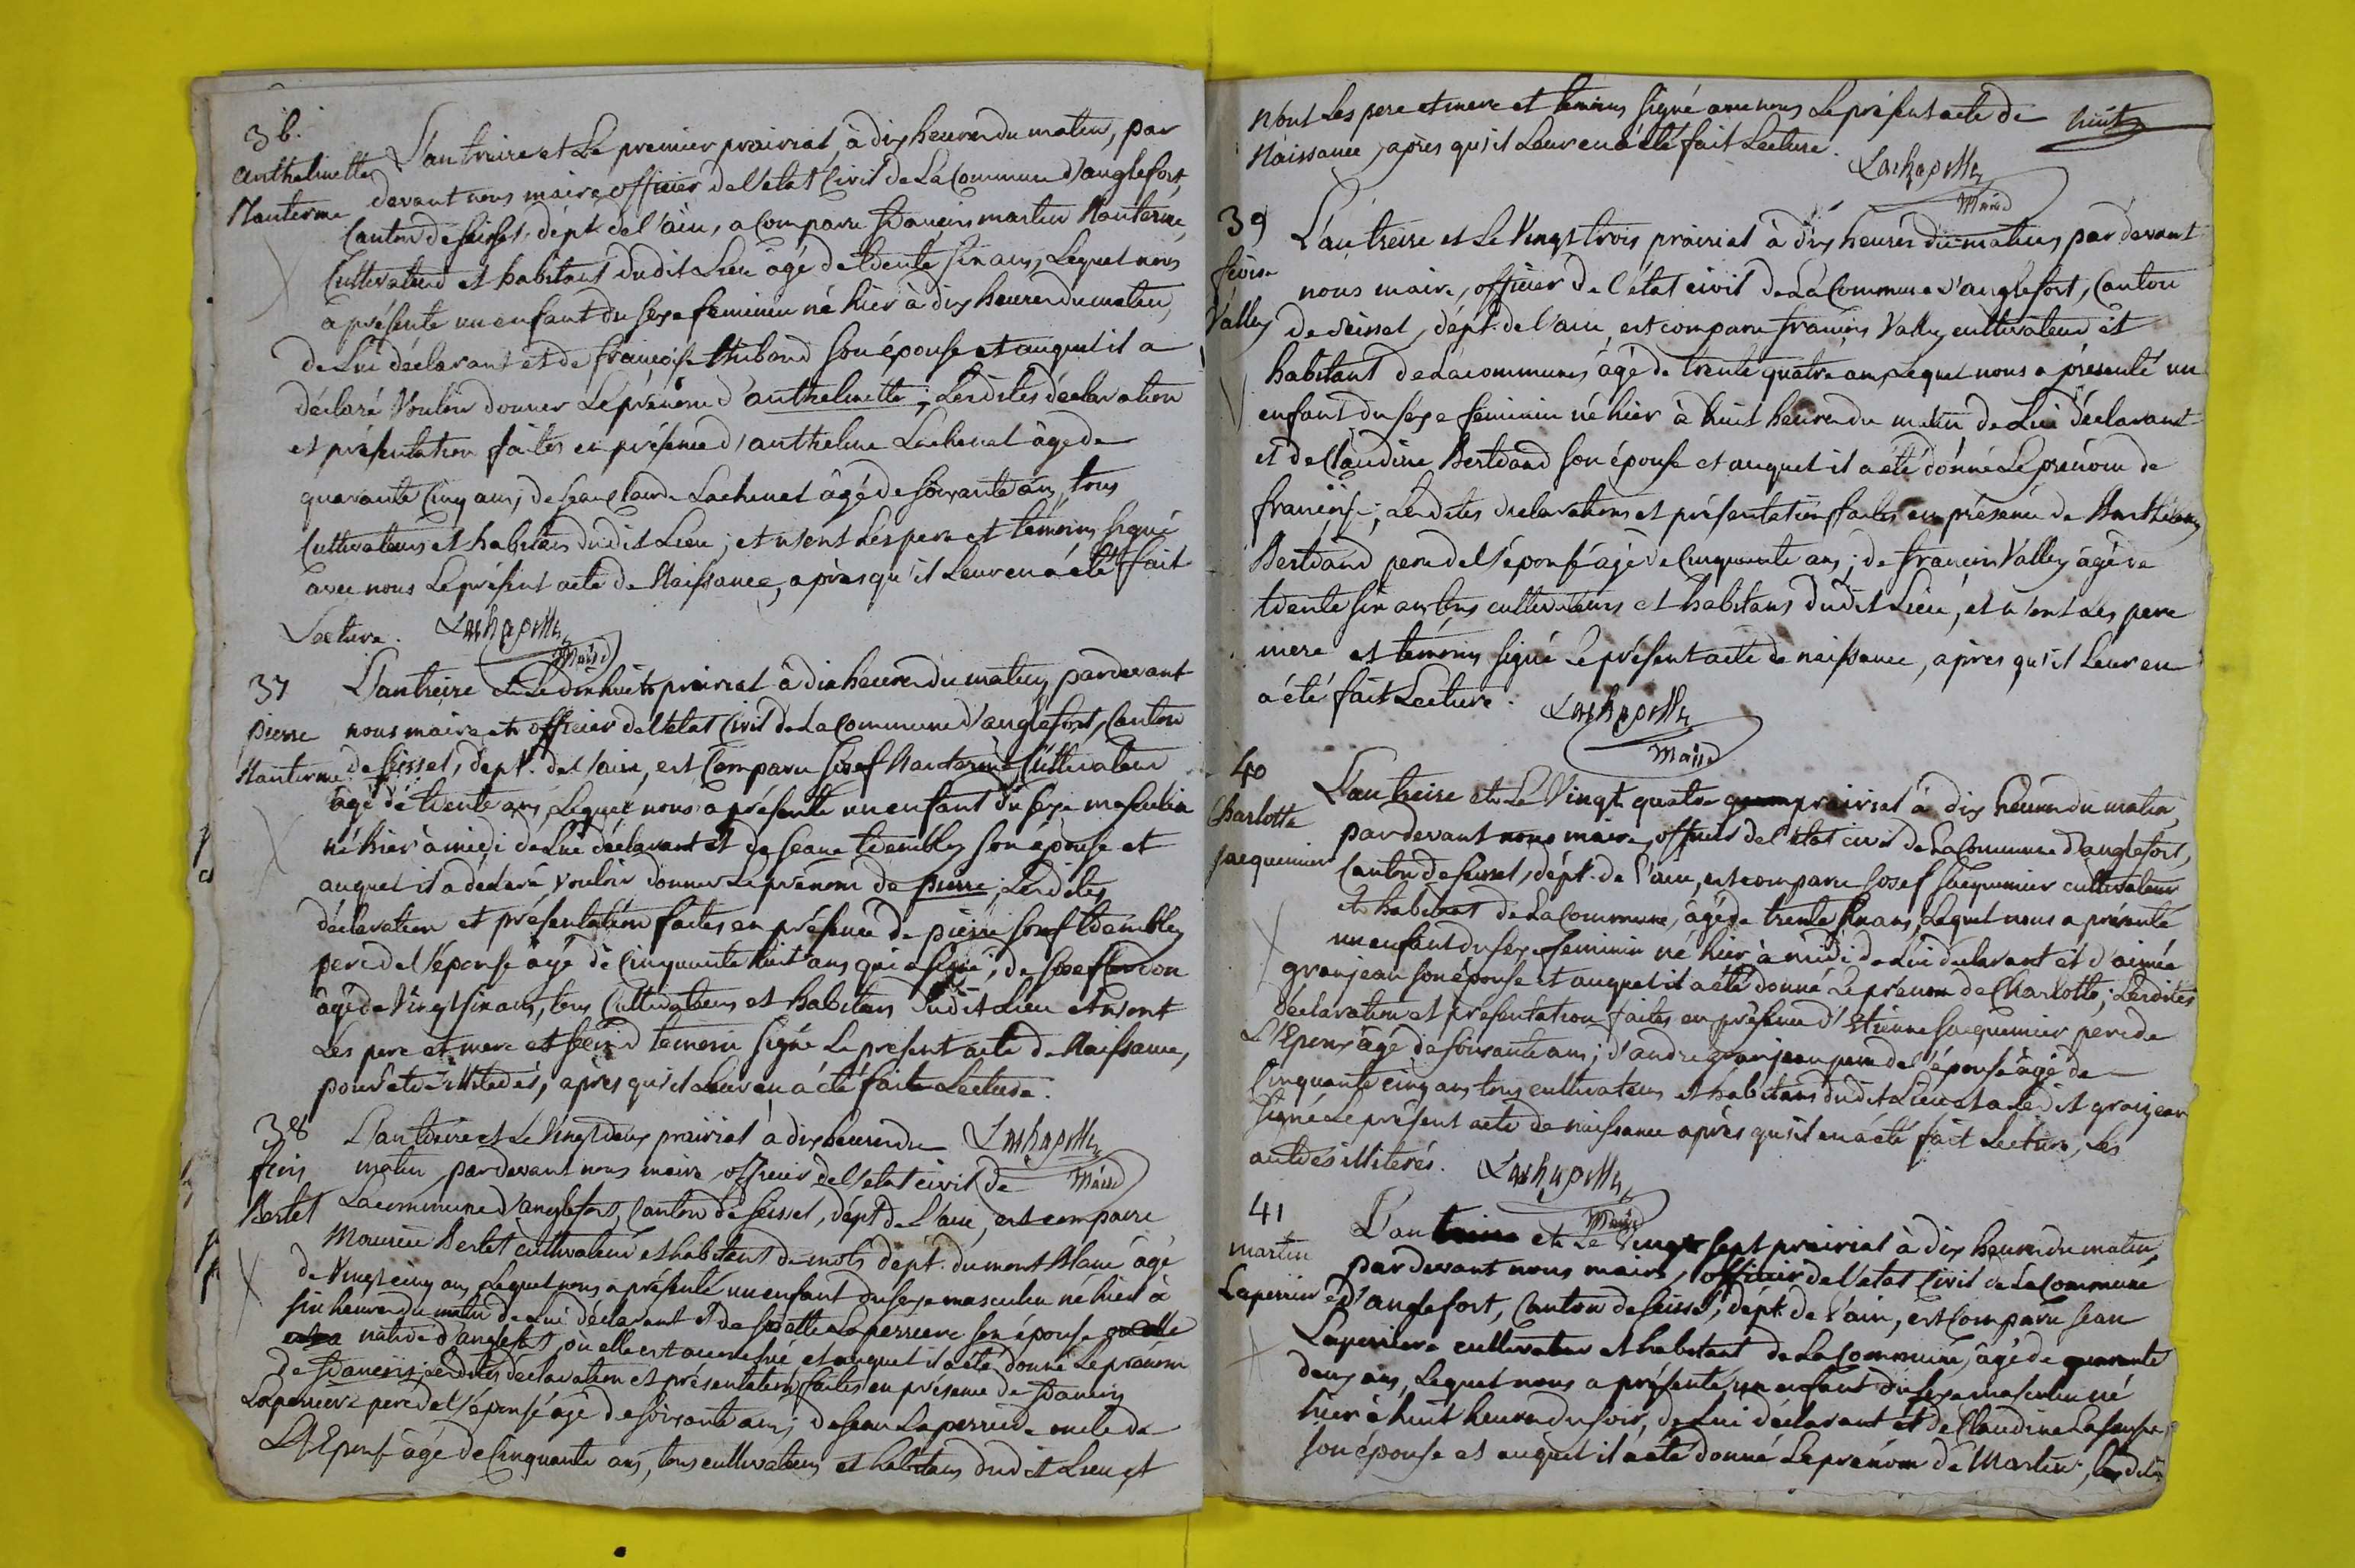 36.
anthelmette
Nanterme
L'an treize et Le premier prairial, à dix heures du matin, par
devant nous maire officier de l'état Civil de La Commune d'anglefort,
Canton de seissel, dépt. de l'ain, a Comparu françois martin Nanterme,
Cultivateur et habitant dudit Lieu âgé de trente six ans, Lequel nous
a présenté un enfant du sexe feminin né hier à dix heures du matin,
de Lui déclarant et de françoise thiboud son épouse et auquel il a
déclaré Vouloir donner Le prénom d'anthelmette; Lesdites déclaration
et présentation faites en présence d'anthelme Lachenal âgé de
quarante Cinq ans; de jean claude Lachenal âgé de soixante ans, tous
Cultivateurs et habitans dudit Lieu; et n'ont Les pere et témoins signé
avec nous Le présent acte de Naissance, après qu'il Leur en a été fait
Lecture. Lachapelle
Maire
37
pierre
Nanterme
L'an treize et Le dix huit prairial à dix heures du matin, pardevant
nous maire et officier de l'état Civil de La Commune d'anglefort, Canton
de seissel, dépt. de l'ain, est Comparu Josef Nanterme Cultivateur
âgé de trente ans, Lequel nous a présenté un enfant du sexe masculin
né hier à midi de Lui déclarant et de jeane trembley son épouse et
auquel il a déclaré vouloir donner Le prénom de pierre; Lesdites
déclaration et présentation faites en présence de pierre josef trembley
pere de l'épouse âgé de Cinquante huit ans qui a signé; de josef
âgé de Vingt six ans, tous Cultivateurs et habitans dudit Lieu et n'ont
Les pere et mere et second temoin signé Le présent acte de Naissance,
pour être illiterés, après qu'il Leur en a été fait Lecture.
38
fçois
Bertet
L'an treize et Le Vingt deux prairial à dix heures du Lachapelle
matin, pardevant nous maire, officier de l'état civil de Maire
La commune d'anglefort, Canton de seissel, dépt. de l'ain, est comparu
Maurice Bertet cultivateur et habitant de mots dépt. du mont Blanc âgé
de Vingt cinq ans, Lequel nous a présenté un enfant du sexe masculin né hier à
six heures du matin de Lui déclarant et de Laperriere son épouse
native d'anglefort, où elle est accouchée et auquel il a été donné Le prénom
de françois; Lesdites déclaration et présentation faites en présence de françois
Laperriere pere de l'épouse âgé de soixante ans; de jean Laperriere oncle de
L'Epouse âgé de Cinquante ans, tous cultivateurs et habitans dudit Lieu et
n'ont Les pere et mere et temoins signé avec nous Le présent acte de
Naissance, après qu'il Leur en a été fait Lecture. Lachapelle
Maire
39
fçoise
Valley
L'an treize et Le Vingt trois prairial à dix heures du matin, par devant
nous maire, officier de l'état civil de La Commune d'anglefort, Canton
de seissel, dépt. de l'ain, est comparu françois Valley cultivateur et
habitant de La commune, âgé de trente quatre ans, Lequel nous a présenté un
enfant du sexe feminin né hier à huit heures du matin de Lui déclarant
et de Claudine Bertrand son épouse et auquel il a été donné Le prénom de
françoise; Lesdites declarations et présentation faites en présence de Barthélemy
Bertrand pere de l'épouse âgé de Cinquante ans; de françois Valley âgé de
trente six ans, tous cultivateurs et habitans dudit Lieu, et n'ont Les pere
mere et temoins signé Le présent acte de naissance, après qu'il Leur en
a été fait Lecture. Lachapelle
Maire
40
Charlotte
Jacquemier
L'an treize et Le Vingt quatre prairial à dix heures du matin,
pardevant nous maire, officier de l'état civil de La Commune d'anglefort,
Canton de seissel, dépt. de l'ain, est comparu Josef Jacquemier cultivateur
et habitant de La Commune, âgé de trente six ans, Lequel nous a présenté
un enfant du sexe feminin né hier à midi de Lui declarant et d'aimée
granjean son épouse et auquel il a été donné Le prénom de Charlotte; Lesdites
déclaration et présentation faites en présence d'Etienne Jacquemier pere de
L'Epoux âgé de soixante ans; d'andré granjean pere de l'épouse âgé de
Cinquante cinq ans tous cultivateurs et habitans dudit Lieu et a Ledit granjean
signé Le présent acte de naissance après qu'il en a été fait Lecture, Les
autres illiterés. Lachapelle
Maire
41
martin
Laperriere
L'an treize et Le Vingt sept prairial à dix heures du matin,
pardevant nous maire, officier de l'état Civil de La Commune
d'anglefort, Canton de seissel, dépt. de l'ain, est Comparu jean
Laperriere cultivateur et habitant de La Commune, âgé de quarante
deux ans, Lequel nous a présenté un enfant du sexe masculin né
hier à huit heures du soir, de Lui déclarant et de Claudine
son épouse et auquel il a été donné Le prénom de Martin; Lesdites